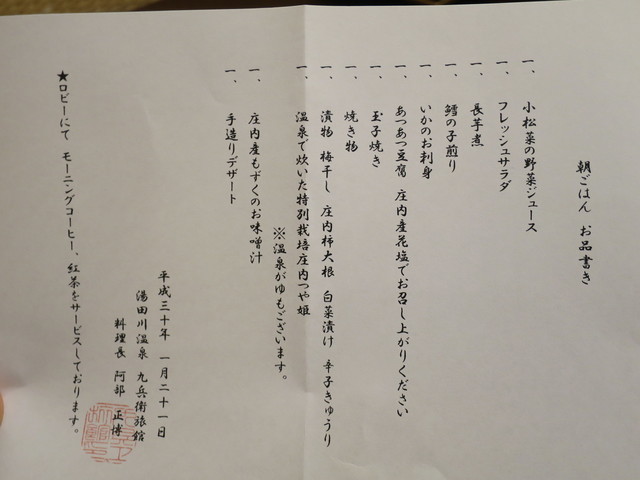 朝ごはん お品書き
一、 小松菜の野菜ジュース
一、 フレッシュサラダ
一、 長芋煮
一、 鱈の子煎り
一、 いかのお刺身
一、 あつあつ豆腐 庄内産花塩でお召し上がりください
一、 玉子焼き
一、 焼き物
一、 漬物 梅干し 庄内柿大根 白菜漬け 辛子きゅうり
一、 温泉で炊いた特別栽培庄内つや姫
※温泉がゆもございます。
一、 庄内産もずくのお味噌汁
一、 手造りデザート
平成三十年 一月二十一日
湯田川温泉 九兵衛旅館
料理長 阿部 正博
★ロビーにて モーニングコーヒー、紅茶をサービスしております。